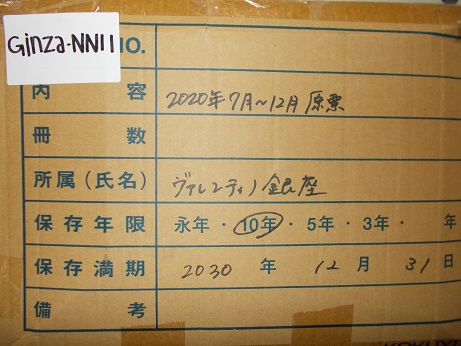 Ginza-NN11 NO.
内容 2020年7月~12月 原票
冊数
所属(氏名) ヴァレンティノ銀座
保存年限 永年・10年・5年・3年・ 年
保存満期 2030年 12月 31日
備考
KOKUYO